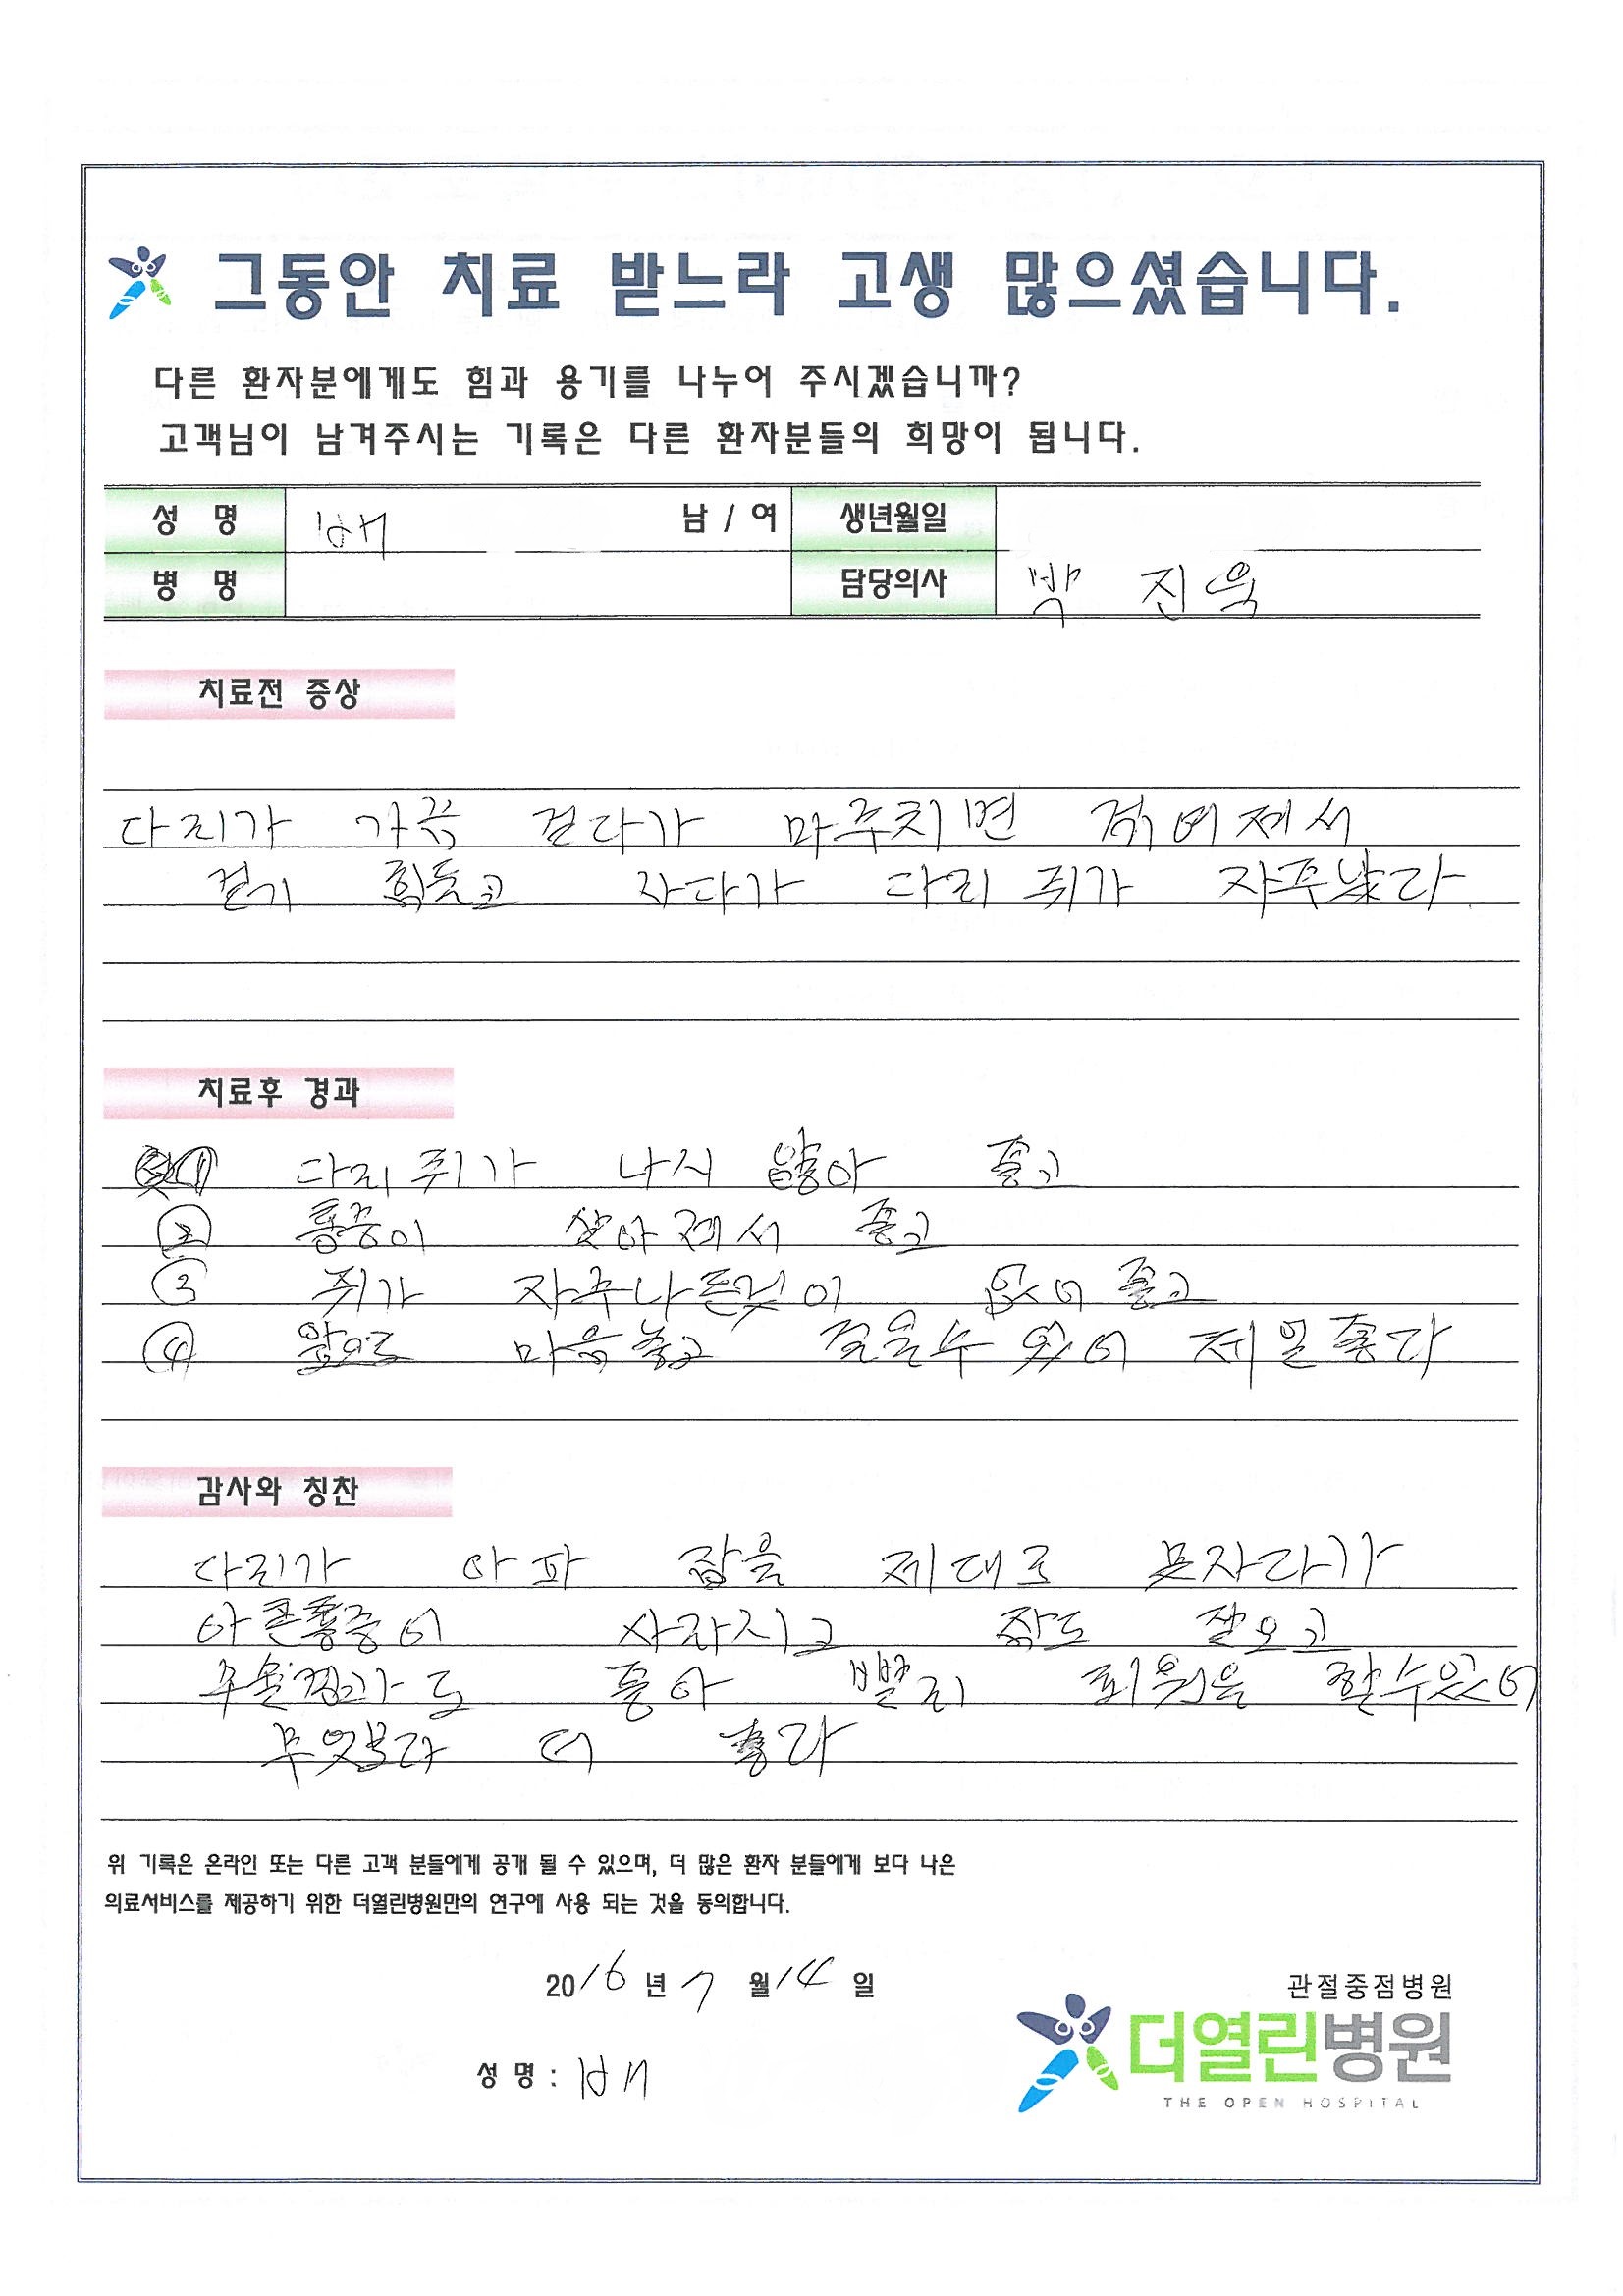 그동안 치료 받느라 고생 많으셨습니다.
다른 환자분에게도 힘과 용기를 나누어 주시겠습니까?
고객님이 남겨주시는 기록은 다른 환자분들의 희망이 됩니다.
성 명 배 남 / 여 생년월일
병 명 담당의사 박 진욱
치료전 증상
다리가 가끔 걷다가 마주치면 적어제서
걷기 힘들고 자다가 다리 쥐가 자주났다
치료후 경과
① 다리쥐가 나지 않아 좋고
② 통증이 살아제서 좋고
③ 쥐가 자주나든것이 없어 좋고
④ 앞으로 마음놓고 걸을수 있어 제일좋다
감사와 칭찬
다리가 아파 잠을 제대로 못자다가
아픈통증이 사라지고 잠도 잘오고
수술경과도 좋아 빨리 퇴원을 할수있어
무엇보다 더 좋다
위 기록은 온라인 또는 다른 고객 분들에게 공개 될 수 있으며, 더 많은 환자 분들에게 보다 나은
의료서비스를 제공하기 위한 더열린병원만의 연구에 사용 되는 것을 동의합니다.
2016년 7월 14일
관절중점병원
더열린병원
THE OPEN HOSPITAL
성 명 : 배